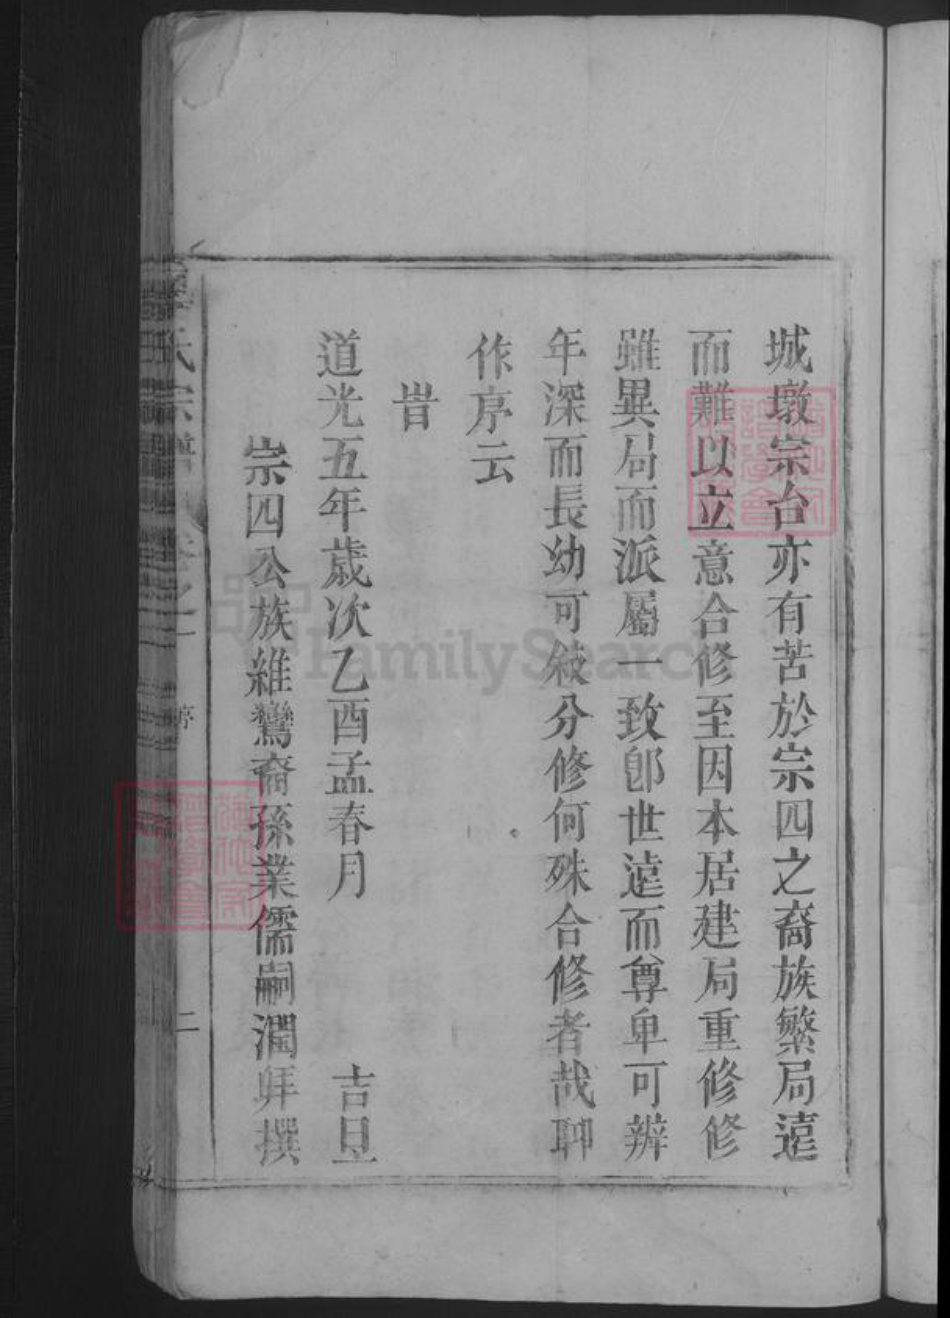 城墩宗台亦有苦於宗四之裔族繁局遠
而難以立意合修至因本居建局重修修
雖異局而派屬一致卽世遠而尊卑可辨
年深而長幼可敍分修何殊合修者哉聊
作序云
旹
道光五年歲次乙酉孟春月 吉旦
宗四公族維鸞裔孫業儒嗣潤拜撰
氏宗譜 卷之一 序 二
FamilySearch